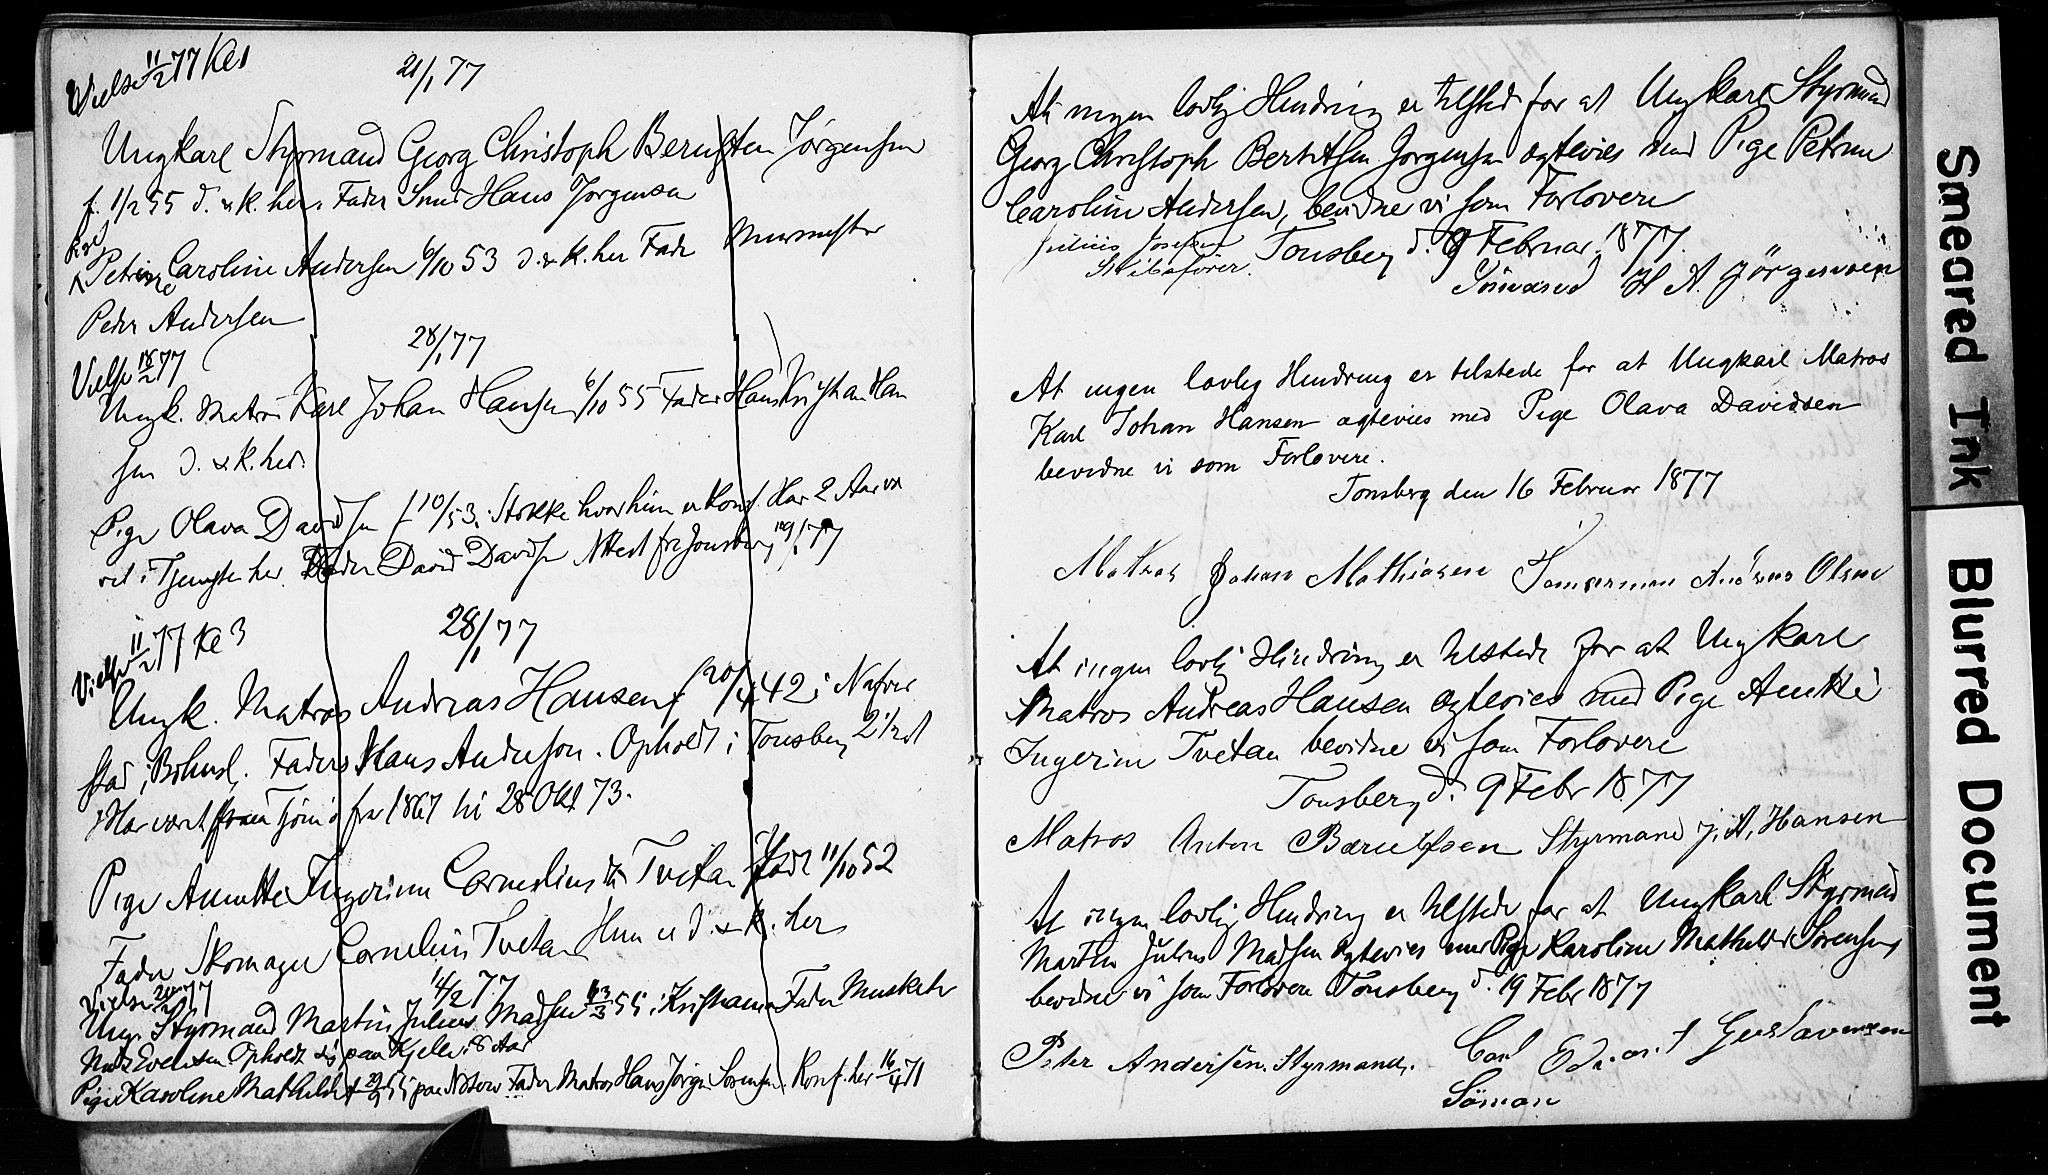 Vielse 11/2 77 Kl 1
21/1 77
Ungkarl Styrmand Georg Christoph Berntsen Jørgensen
f. 1/2 55 d. & k. her. Fader Smed Hans Jørgensen
Petrine Caroline Andersen 6/10 53 d. & k. her Fader Murmester
Peder Andersen
Vielse 18/2 77
28/1 77
Ungk. Matros Karl Johan Hansen 6/10 55 Fader Hans Kristian Han
sen d. & k. her.
Pige Olava Davidsen f 10/53 i Stokke hvor hun er konf. Har 2 Aar væ
ret i Tjeneste her. Fader David Davidsen Attest fra Jonsberg 19/1 77
Vielse 11/2 77 Kl 3
28/1 77
Ungk. Matros Andreas Hansen f 20/4 42 i
stad i Bohusl. Fader Hans Andersson. Opholdt i Tonsberg
Har været paa Tjømø fra 1867 til 28 Okt 73.
Pige Anette Ingerine Cornelius Tvetan født 11/10 52
Fader Skomager Cornelius Tvetan Hun er d. & k. her
Vielse 77
14/2 77
Ung. Styrmand Martin Julius Madsen 3/3 55 i Kristiania Fader Musketer
Mads Evensen Opholdt sig paa Kjelle i 8 Aar
Pige Karoline Mathilde f 55 paa Nøtterø Fader Matros Hans Jørgen Sørensen. Konf. her 16/4 71
At ingen lovlig Hindring er tilsted for at Ungkarl Styrmand
Georg Christoph Berntsen Jørgensen ægtevies med Pige Petrine
Caroline Andersen, bevidne vi som Forlovere
Tonsberg d. 9 Februar 1877.
Julius Josefsen
Skibsfører.
H A Jörgensen
At ingen lovlig Hindring er tilstede for at Ungkarl Matros
Karl Johan Hansen ægtevies med Pige Olava Davidsen
bevidne vi som Forlovere.
Tonsberg den 16 Februar 1877
Matros Johan Mathiasen Tømerman Andreas Olsen
At ingen lovlig Hindring er tilstede for at Ungkarl
Matros Andreas Hansen ægtevies med Pige Anette
Ingerine Tvetan bevidne vi som Forlovere
Tonsberg d. 9 Febr 1877
Matros Anton Berntsen Styrmand J. A. Hansen
At ingen lovlig Hindring er tilstede for at Ungkarl Styrmand
Martin Julius Madsen ægtevies med Pige Karoline Mathilde Sørensen
bevidne vi som Forlovere Tonsberg d. 19 Febr 1877
Peter Andersen. Styrmand. Carl Edvart Gustavensen
Söman
Smeared Ink
Blurred Document